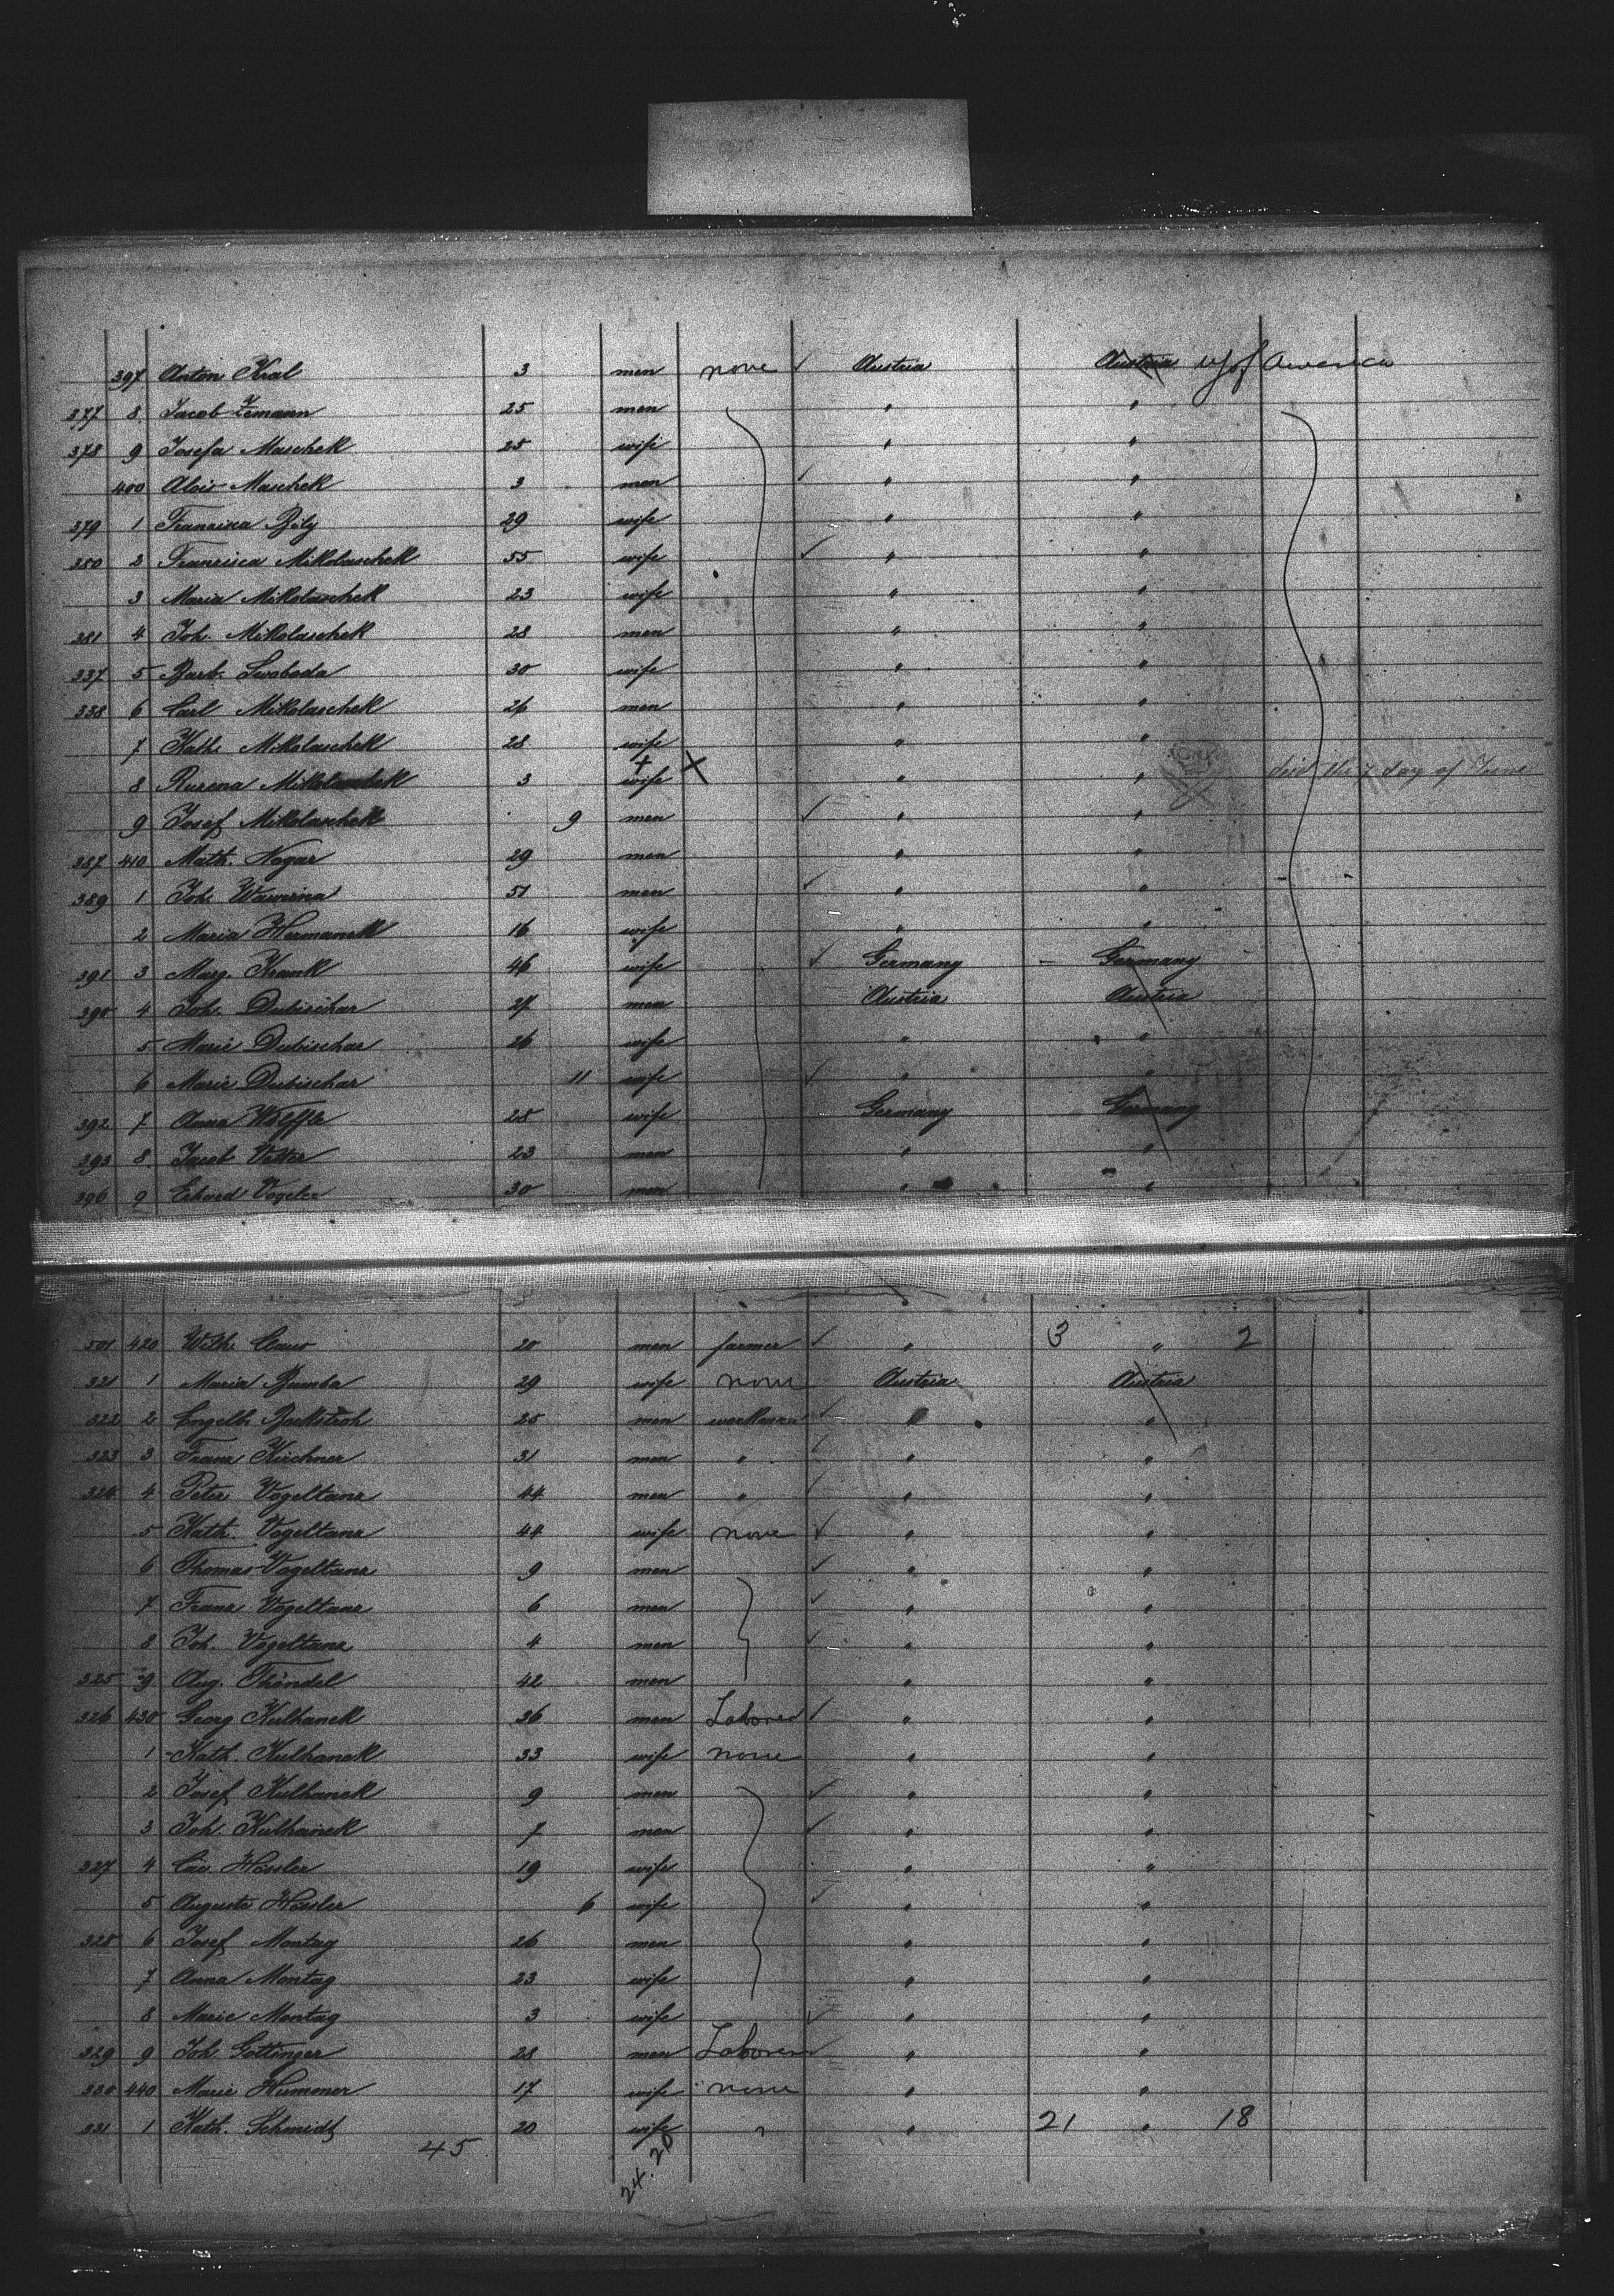 397 Anton Kral 3 men none ✓ Austria Austria U S of America
377 8 Jacob Zemann 25 men " "
378 9 Josefa Maschek 25 wife " "
400 Alois Maschek 3 men ✓ " "
379 1 Franzisca Bily 29 wife " "
380 2 Franzisca Mikolaschek 55 wife ✓ " "
3 Maria Mikolaschek 23 wife " "
381 4 Joh. Mikolaschek 28 men " "
337 5 Barb. Swoboda 30 wife " "
338 6 Carl Mikolaschek 26 men " "
7 Kath. Mikolaschek 28 wife " "
8 Rusena Mikolaschek 3 wife + X " " died the 7 day of June
9 Josef Mikolaschek 9 men ✓ " "
387 410 Math. Nagar 29 men " "
389 1 Joh. Wawrina 51 men ✓ " "
2 Maria Hermanek 16 wife " "
391 3 Marg. Krank 46 wife ✓ Germany - Germany
390 4 Joh. Dubischar 27 men Austria Austria
5 Marie Dubischar 26 wife " "
6 Marie Dubischar 11 wife ✓ " "
392 7 Anna 28 wife Germany Germany
393 8 Jacob Vetter 23 men " "
396 9 Erhard Vogeler 30 men " "
501 420 Wilh. Claus 20 men farmer ✓ " 3 " 2
321 1 Maria Bumba 29 wife none Austria Austria
322 2 Engelb. 25 men workman ✓ " "
323 3 Franz Kirchner 31 men " ✓ " "
324 4 Peter Vogeltanz 44 men " ✓ " "
5 Kath. Vogeltanz 44 wife none ✓ " "
6 Thomas Vogeltanz 9 men ✓ " "
7 Franz Vogeltanz 6 men ✓ " "
8 Joh. Vogeltanz 4 men ✓ " "
325 9 Aug. Thöndel 42 men " "
326 430 Georg Kulhanek 36 men Laborer ✓ " "
1 Kath. Kulhanek 33 wife none " "
2 Josef Kulhanek 9 men ✓ " "
3 Joh. Kulhanek 7 men ✓ " "
327 4 Hässler 19 wife " "
5 Auguste Hässler 6 wife ✓ " "
328 6 Josef Montag 26 men " "
7 Anna Montag 23 wife " "
8 Marie Montag 3 wife ✓ " "
329 9 Joh. Gottinger 28 men Laborer ✓ " "
330 440 Marie Hummer 17 wife none " "
331 1 Kath. Schmidt 20 wife " " 21 " 18
45 24. 20